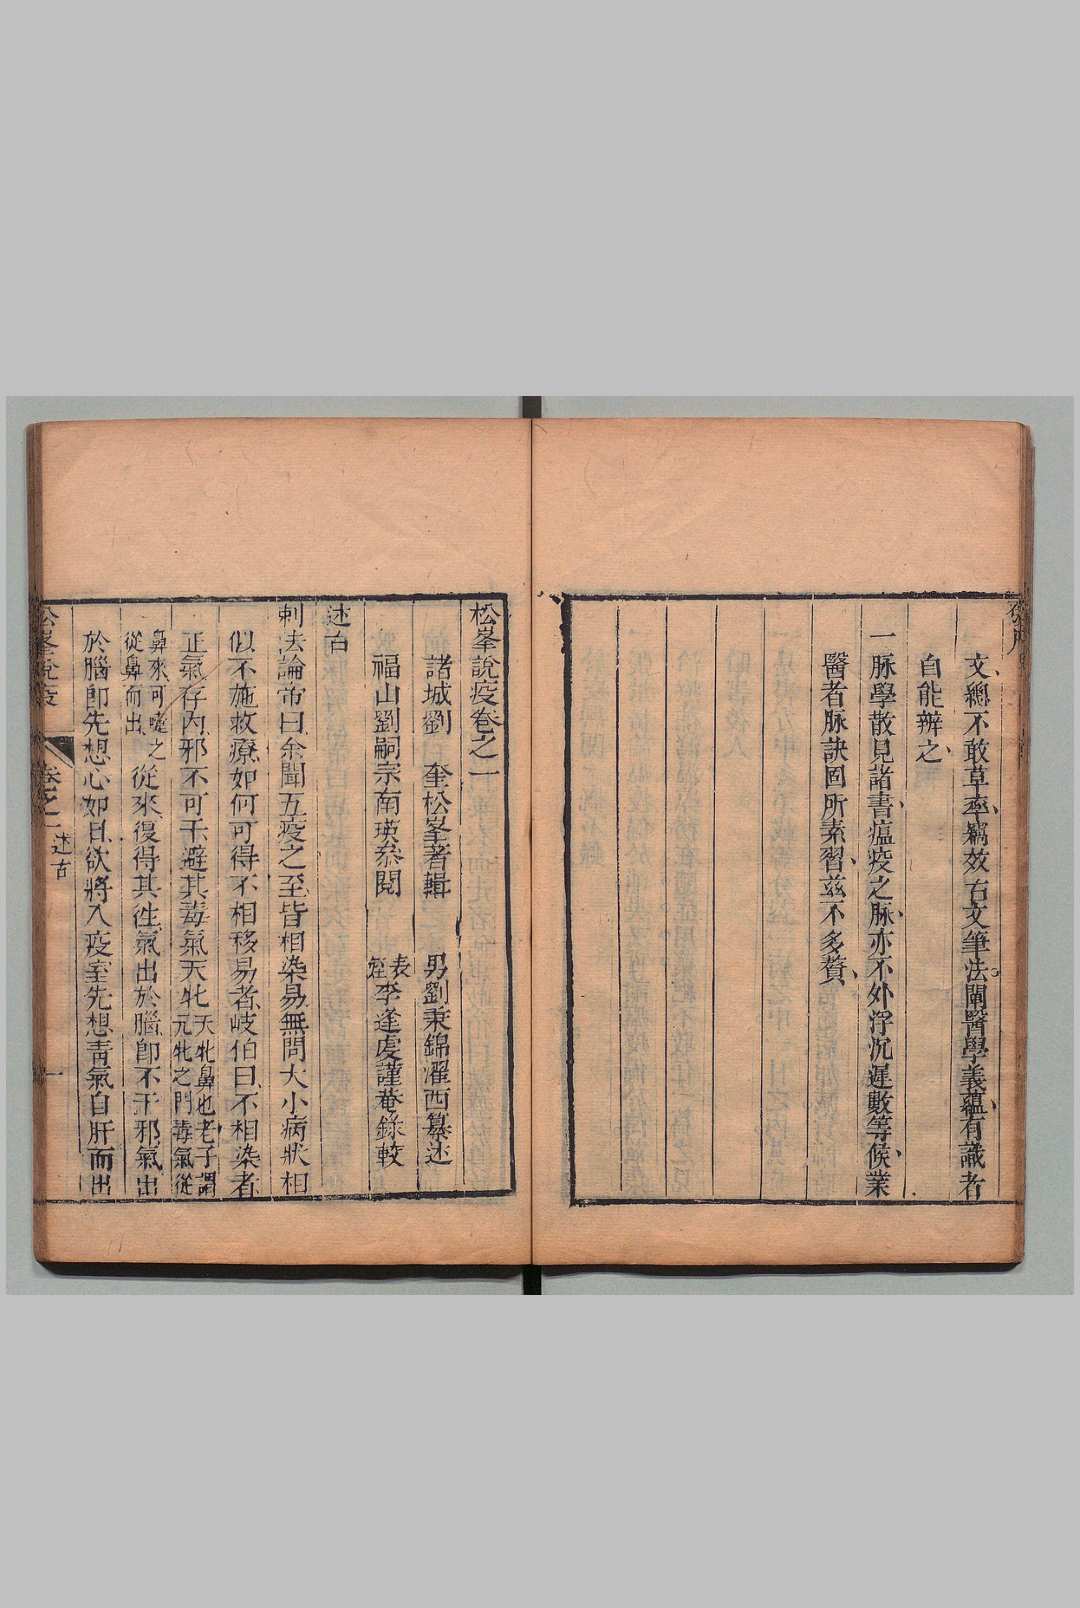 文總不敢草率竊效右文筆法闡醫學義蘊有識者
自能辨之
一脉學散見諸書瘟疫之脉亦不外浮沉遲數等候業
醫者脉訣固所素習茲不多贅
松峯說疫卷之一
諸城劉　奎松峯著輯　男劉秉錦濯西纂述
福山劉嗣宗南瑛叅閱　表姪李逢虔謹菴錄較
述古
刺法論帝曰余聞五疫之至皆相染易無問大小病狀相
似不施救療如何可得不相移易者岐伯曰不相染者
正氣存內邪不可干避其毒氣天牝天牝鼻也老子謂元牝之門毒氣從
鼻來可嚏之從鼻而出從來復得其徃氣出於腦卽不干邪氣出
於腦卽先想心如日欲將入疫室先想靑氣自肝而出
松峯說疫　卷之一　述古　一